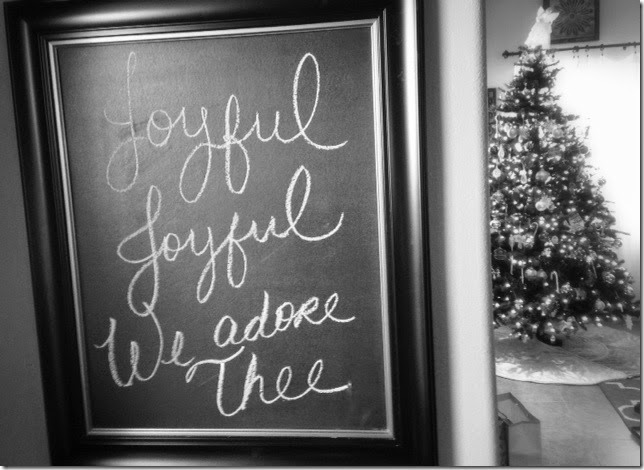 Joyful
Joyful
We adore
Thee